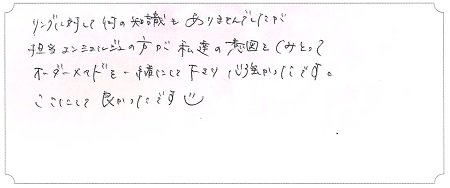 リングに対して何の知識もありませんでしたが
担当コンシェルジュの方が私達の意図をくみとって
オーダーメイドを一緒にして下さり心強かったです。
ここにして良かったです